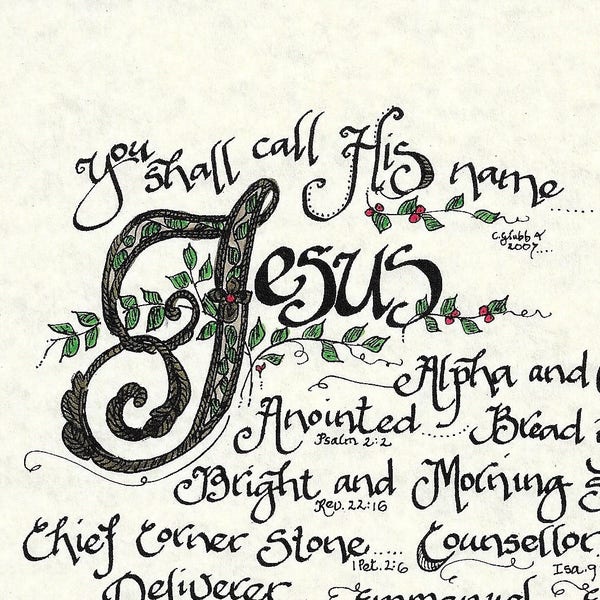 You shall call His name......
C. Grubb
2007....
Jesus
Alpha and
Anointed...... Bread
Psalm 2:2
Bright and Morning
Rev. 22:16
Chief Corner Stone..... Counsellor
1 Pet. 2:6 Isa. 9
Deliverer Emmanuel